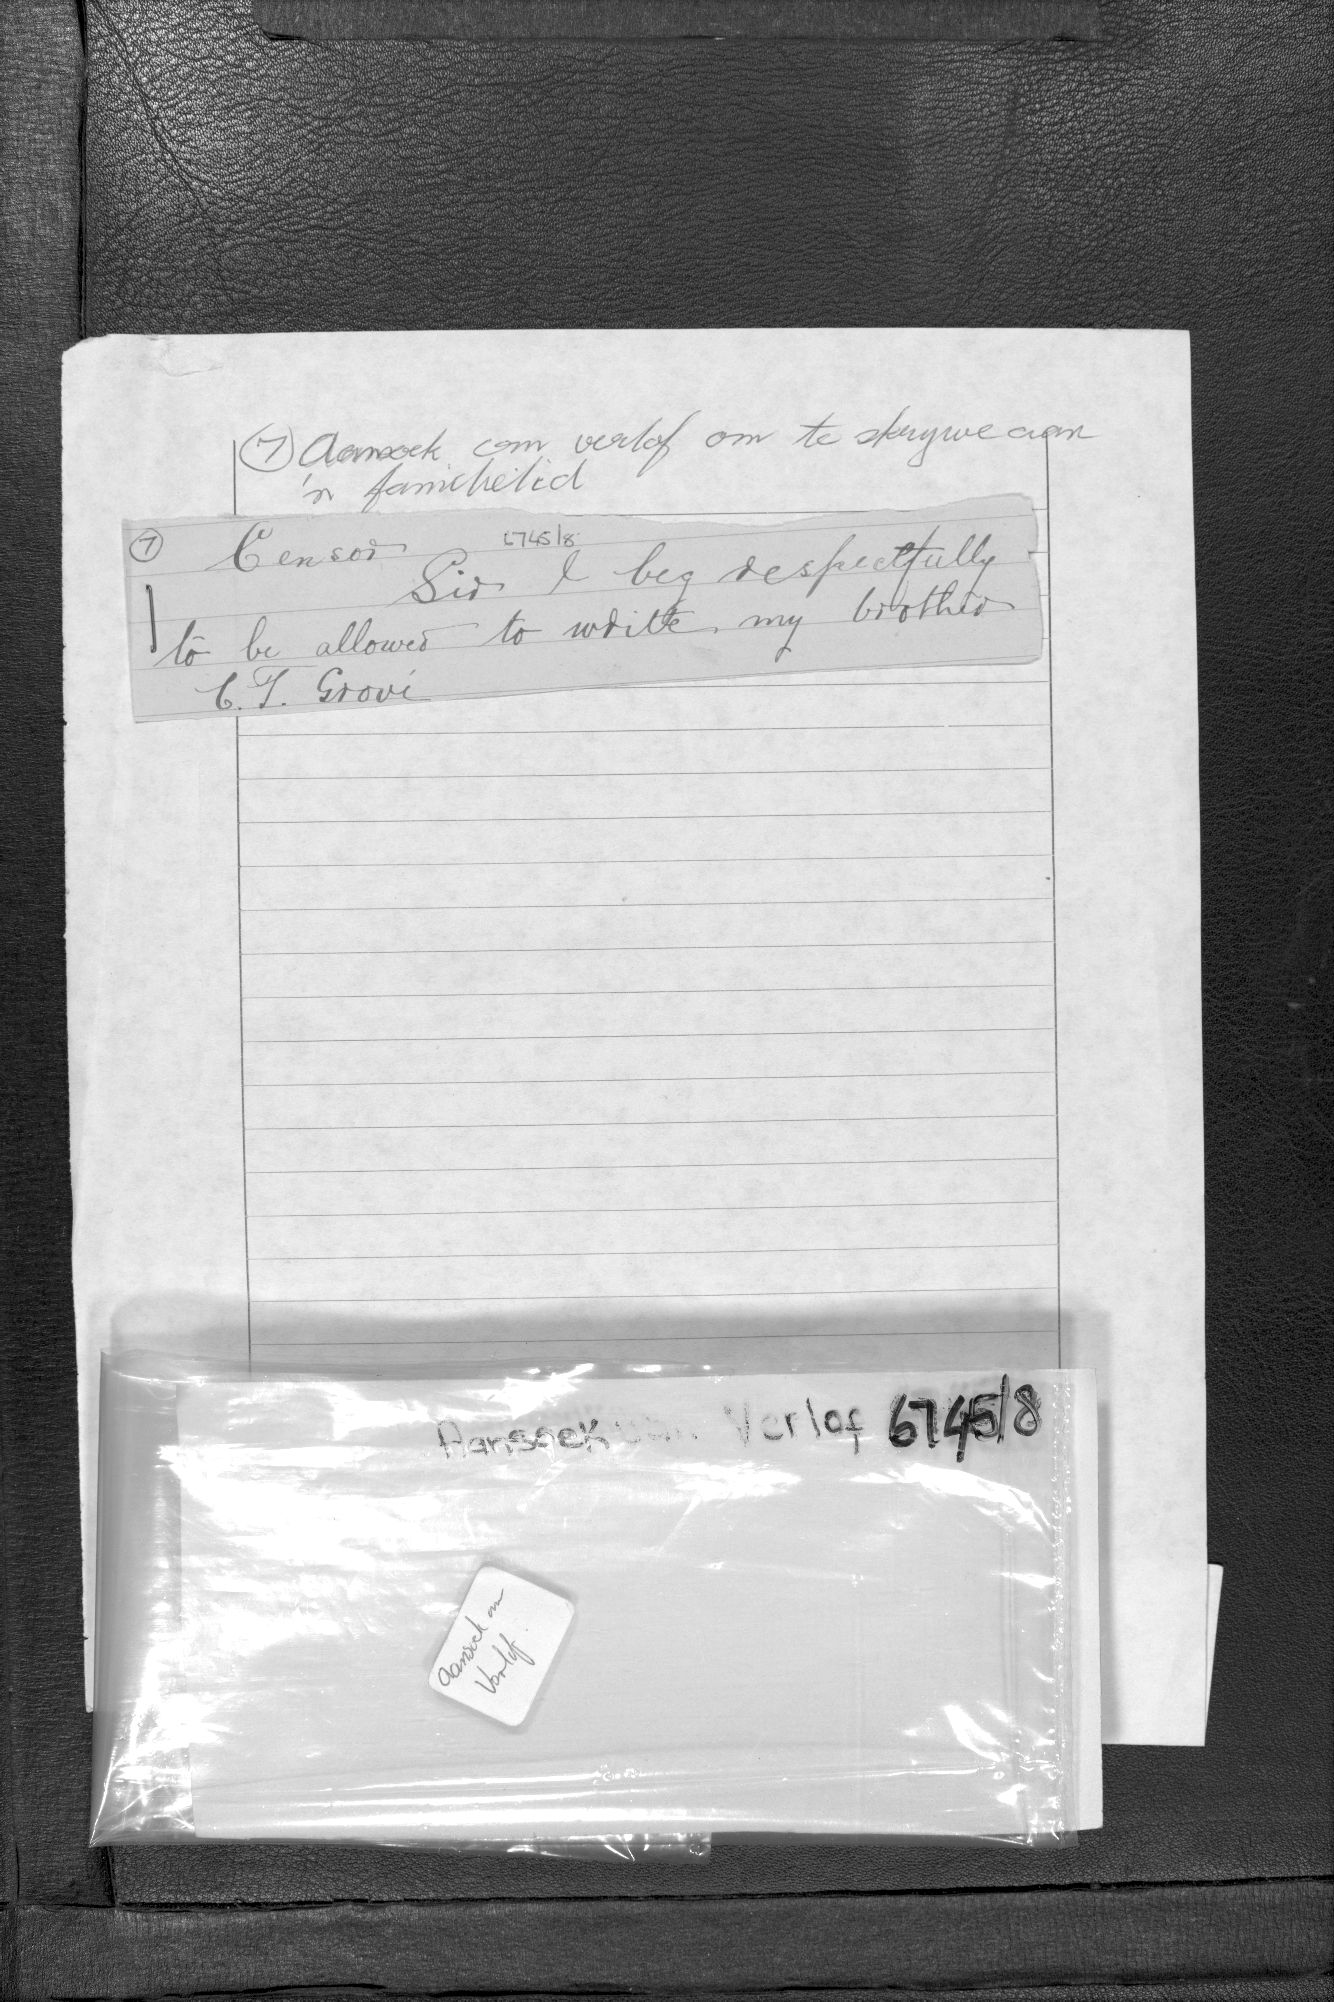 (7) Aansoek om verlof om te skrywe aan
'n familielid
(7) Censor 6745/8
Sir I beg respectfully
to be allowed to write my brother
C. T. Grové
Aansoek van Verlof 6745/8
Aansoek om
Verlof.